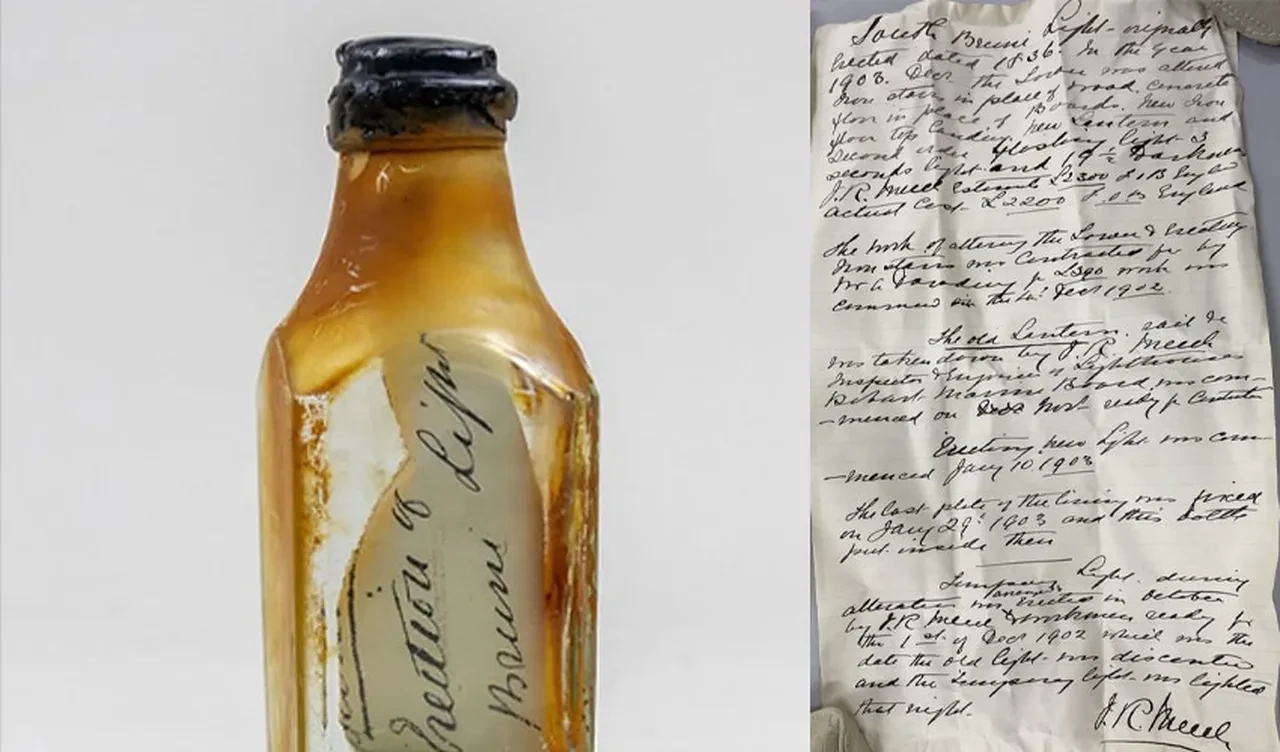 Erection of
Bruni Light
South Bruni Light - originally
Erected dated 1836. In the year
1903. Decr the Tower was altered
Iron stairs in place of wood, concrete
floor in place of Boards. New Iron
floor top landing new Lantern and
second order flashing light 3
seconds light and 19½ Darkness
J.R. Meech Estimate £2300
actual Cost - £2200 F.O.B England
The work of altering the Tower & Erecting
Iron stairs was contracted for by
for £390 work was
commenced on the Decr 1902.
The old Lantern, rail &c
was taken down by J. R. Meech
Inspector & Engineer of Lighthouses
Hobart Marine Board, was com-
-menced on Novr ready for
Erecting new Light was com-
-menced Jany 10. 1903
The last plate of the lining was fixed
on Jany 29. 1903 and this bottle
put inside then
Temporary Light. during
alteration was Erected in October
by J.R Meech & workmen ready for
the 1st of Decr 1902 which was the
date the old light was
and the temporary light was lighted
that night.
J. R. Meech